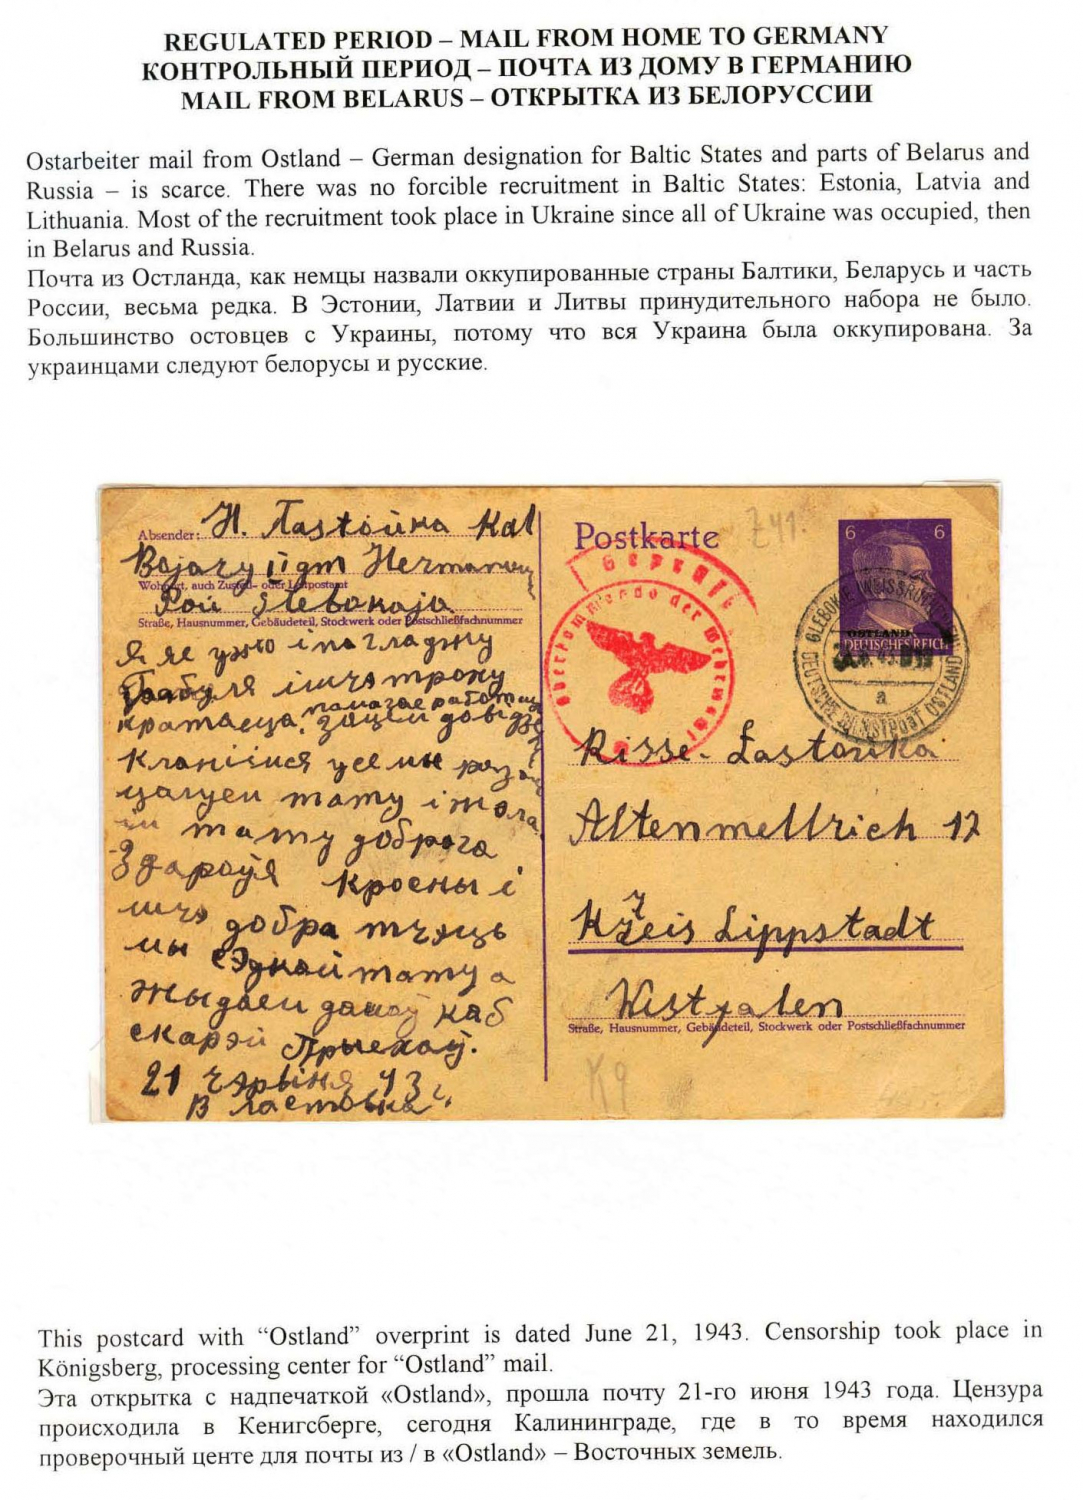 REGULATED PERIOD – MAIL FROM HOME TO GERMANY
КОНТРОЛЬНЫЙ ПЕРИОД – ПОЧТА ИЗ ДОМУ В ГЕРМАНИЮ
MAIL FROM BELARUS – ОТКРЫТКА ИЗ БЕЛОРУССИИ
Ostarbeiter mail from Ostland – German designation for Baltic States and parts of Belarus and
Russia – is scarce. There was no forcible recruitment in Baltic States: Estonia, Latvia and
Lithuania. Most of the recruitment took place in Ukraine since all of Ukraine was occupied, then
in Belarus and Russia.
Почта из Остланда, как немцы назвали оккупированные страны Балтики, Беларусь и часть
России, весьма редка. В Эстонии, Латвии и Литвы принудительного набора не было.
Большинство остовцев с Украины, потому что вся Украина была оккупирована. За
украинцами следуют белорусы и русские.
Absender: Н.
Bojary
Wohnort, auch Zustell- oder Leitpostamt
Straße, Hausnummer, Gebäudeteil, Stockwerk oder Postschließfachnummer
Я яе ужо і пагладжу
ішчэ троху
памагае
кланіліся усе мы
цалуем тату і
тату доброга
Здароўя кросны і
ішчэ добра
мы тату а
жыдаем дамоў каб
скарэй Прыехаў.
21 43 г.
В Ластовка
Postkarte
Z41.
6 6
OSTLAND
DEUTSCHES REICH
GLEBOKIE
DEUTSCHE DIENSTPOST OSTLAND
a
Geprüft
Oberkommando der Wehrmacht
Risse- Lastowka
Altenmellrich 12
Kreis Lippstadt
Westfalen
Straße, Hausnummer, Gebäudeteil, Stockwerk oder Postschließfachnummer
K9
This postcard with “Ostland” overprint is dated June 21, 1943. Censorship took place in
Königsberg, processing center for “Ostland” mail.
Эта открытка с надпечаткой «Ostland», прошла почту 21-го июня 1943 года. Цензура
происходила в Кенигсберге, сегодня Калининграде, где в то время находился
проверочный центе для почты из / в «Ostland» – Восточных земель.